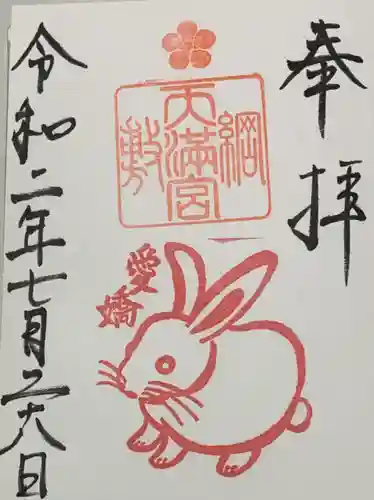 奉拝
綱敷天満宮
愛嬌
令和二年七月二六日